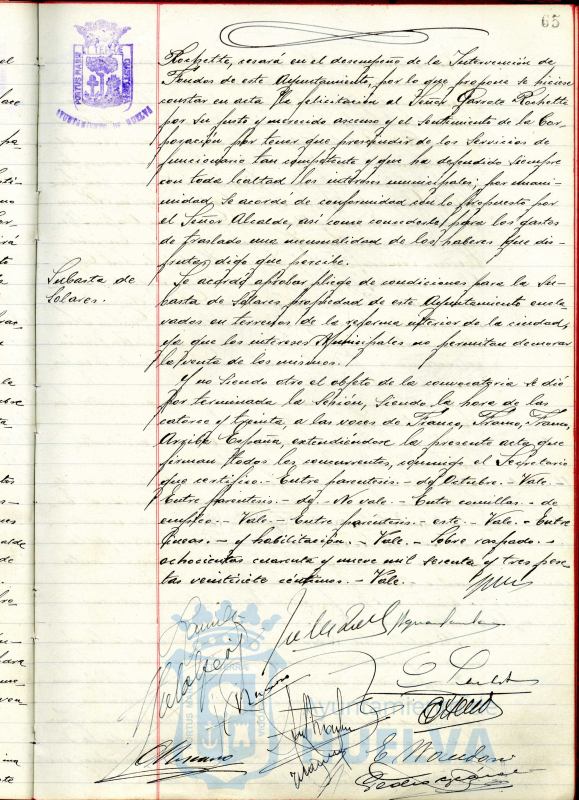 65
PORTUS MARIS ET TERRAE CUSTODIA
AYUNTAMIENTO DE HUELVA
Rochette, cesará en el desempeño de la Intervención de
Fondos de este Ayuntamiento, por lo que propone se hiciese
constar en acta la felicitación al Señor Garrote Rochette
por su justo y merecido ascenso y el sentimiento de la Cor-
poración por tener que prescindir de los Servicios de
funcionario tan competente y que ha defendido siempre
con toda lealtad los intereses municipales; por unani-
midad, se acordó de conformidad con lo propuesto por
el Señor Alcalde, así como concederle para los gastos
de traslado una mensualidad de los haberes que dis-
fruta, digo que percibe.
Subasta de
Solares.
Se acordó aprobar pliego de condiciones para la Su-
basta de Solares propiedad de este Ayuntamiento encla-
vados en terrenos de la reforma interior de la ciudad,
ya que los intereses Municipales no permitan demorar
la venta de los mismos.
Y no siendo otro el objeto de la convocatoria se dió
por terminada la Sesión, siendo la hora de las
catorce y treinta, a las voces de Franco, Franco, Franco,
Arriba España, extendiéndose la presente acta que
firman todos los concurrentes, conmigo el Secretario
que certifico.- Entre parentesis.- Octubre.- Vale.-
Entre parentesis.- dg. No vale.- Entre comillas.- de
empleo.- Vale.- Entre parentesis.- este.- Vale.- Entre
líneas.- y habilitación.- Vale.- Sobre raspado.-
ochocientas cuarenta y nueve mil sesenta y tres pese-
tas veintisiete céntimos.- Vale.-
Ayuntamiento de
HUELVA